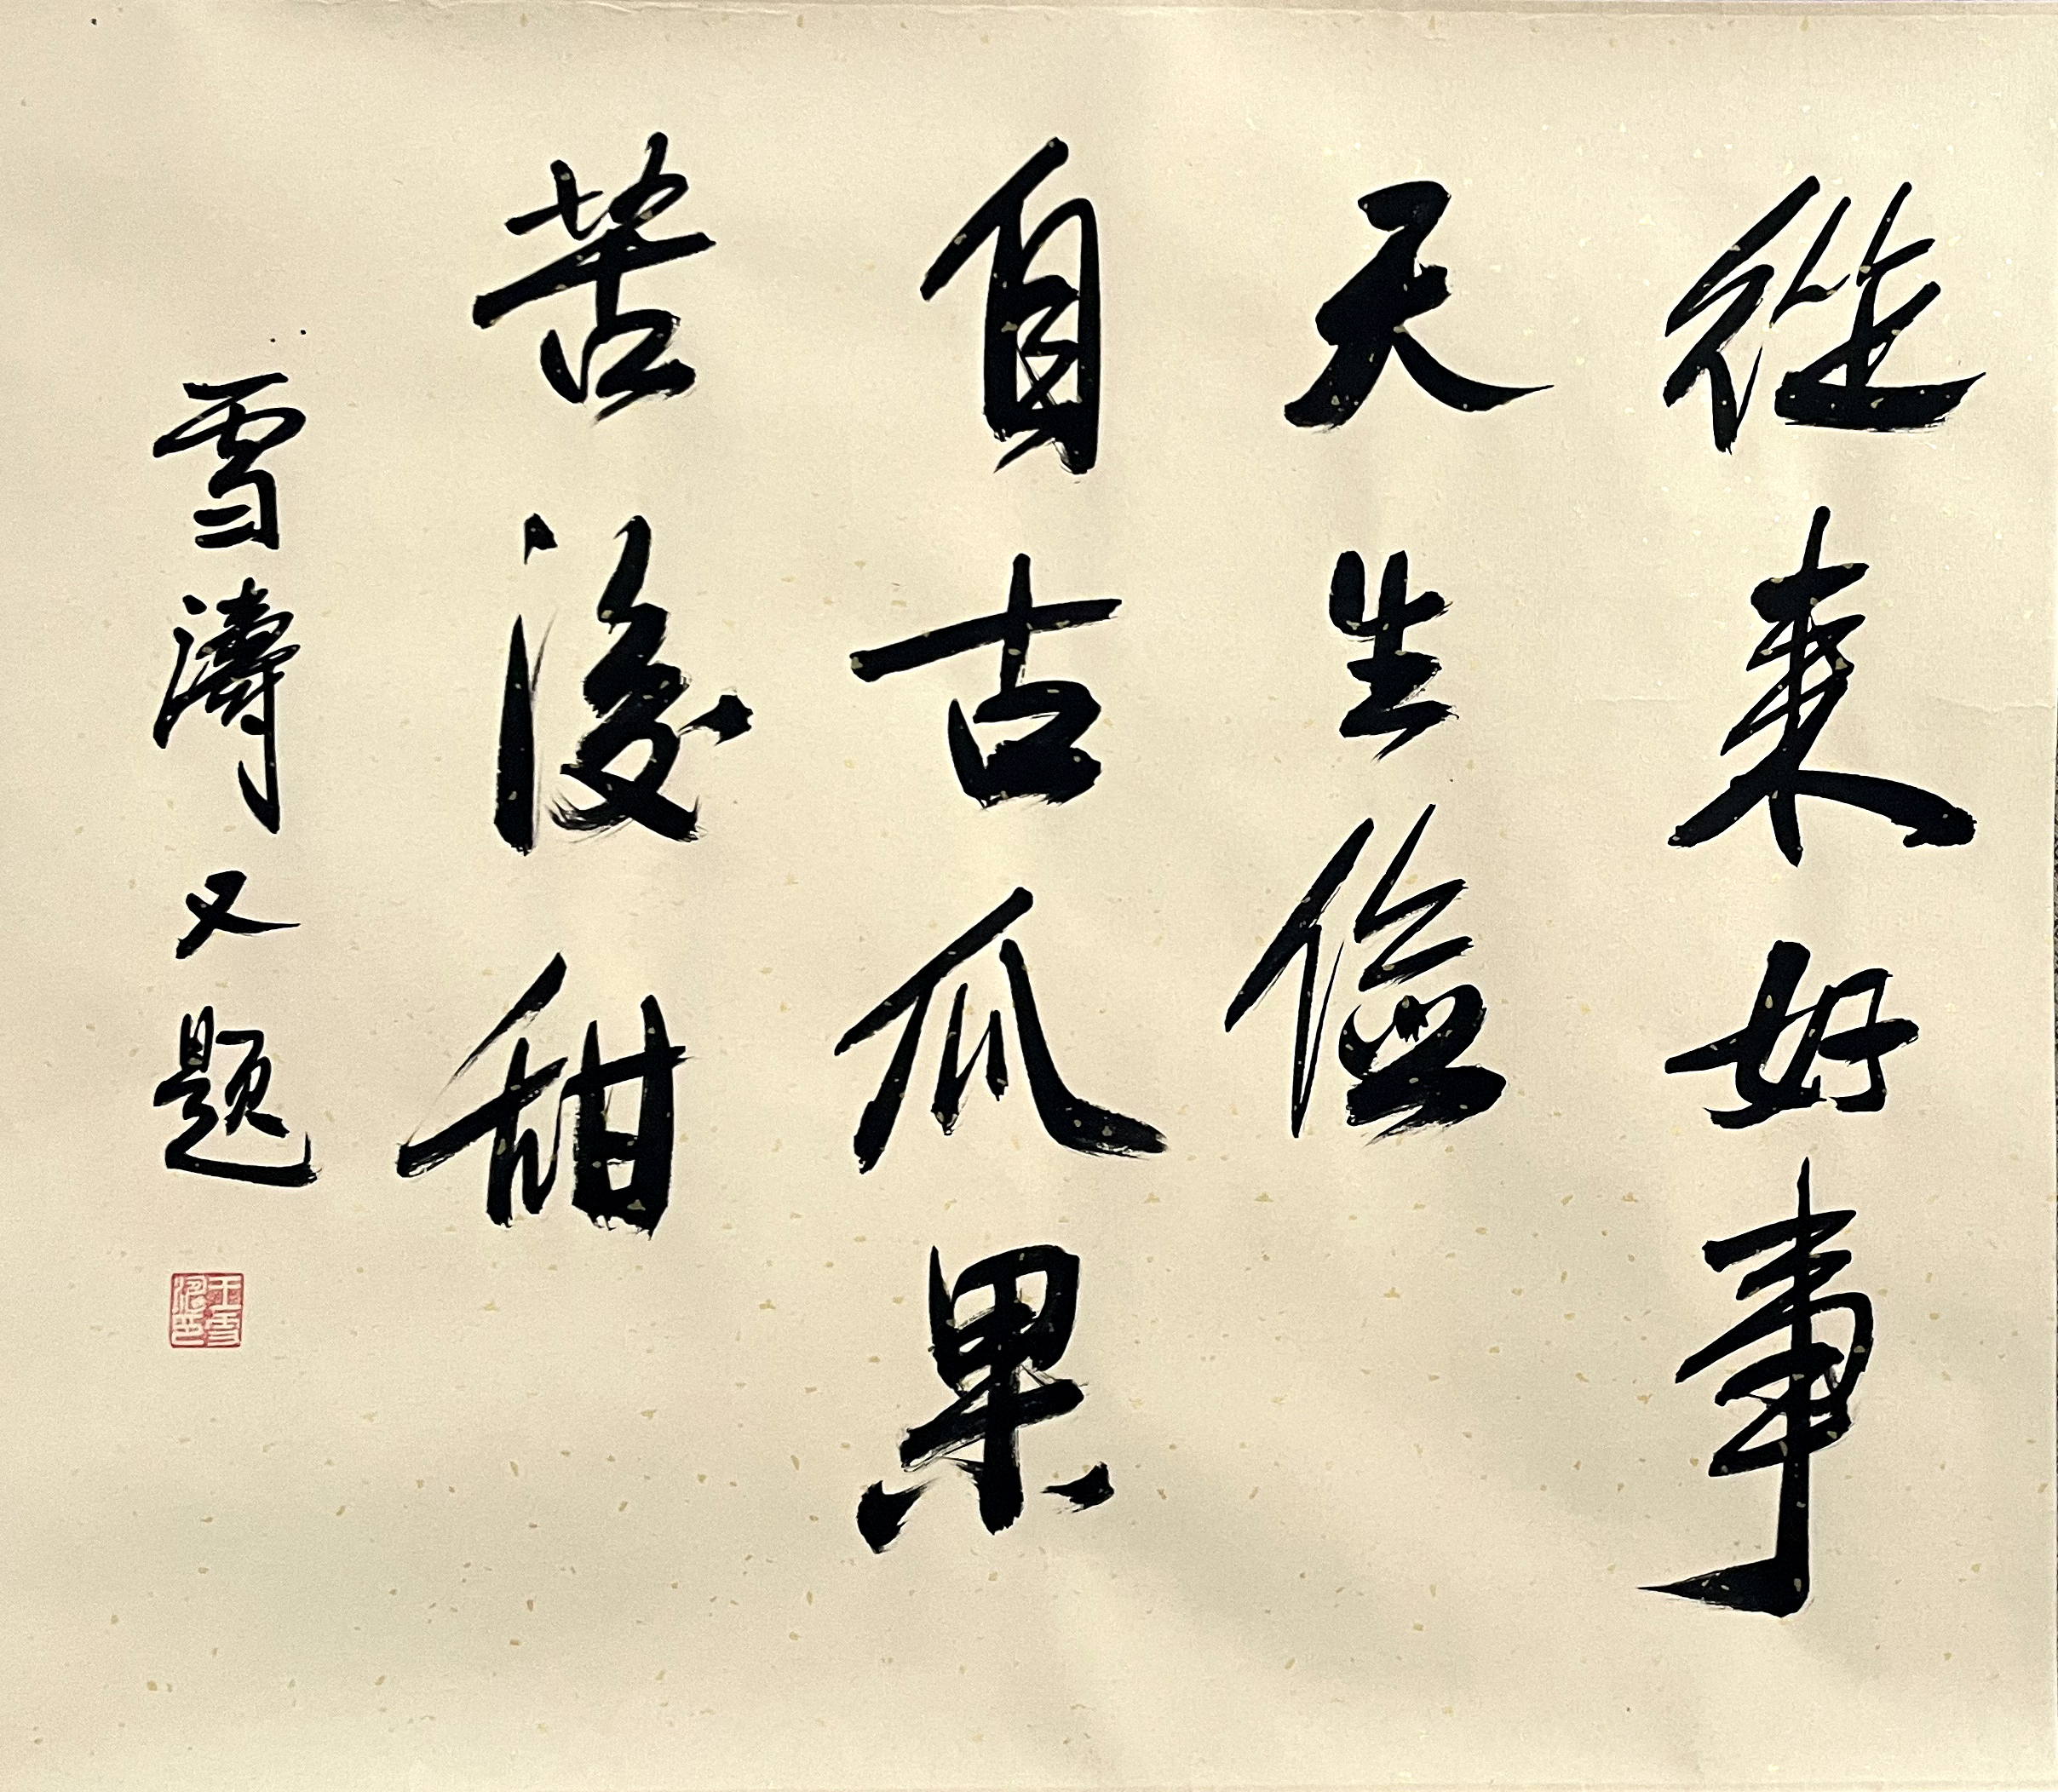 從來好事
天生儉
自古瓜果
苦後甜
雪濤又題